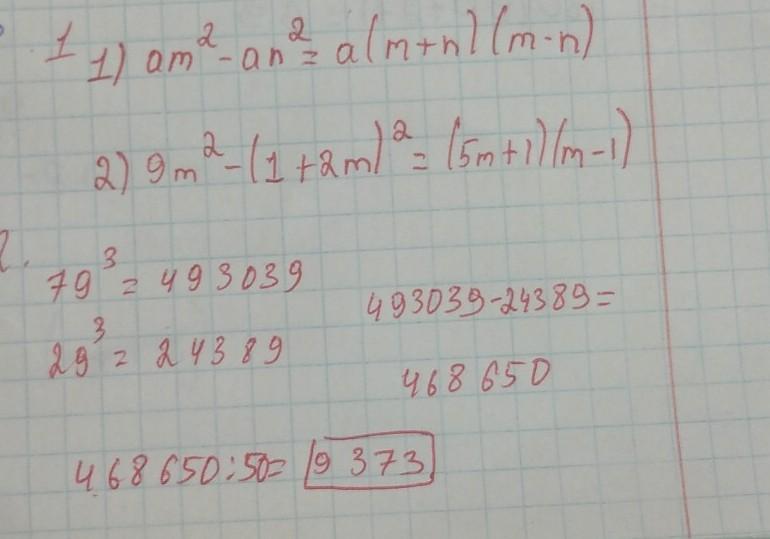 1 1) am² - an² = a(m+n)(m-n)
2) 9m² - (1+2m)² = (5m+1)(m-1)
2.
79³ = 493039
493039-24389=
29³ = 24389
468650
468650:50= 9373